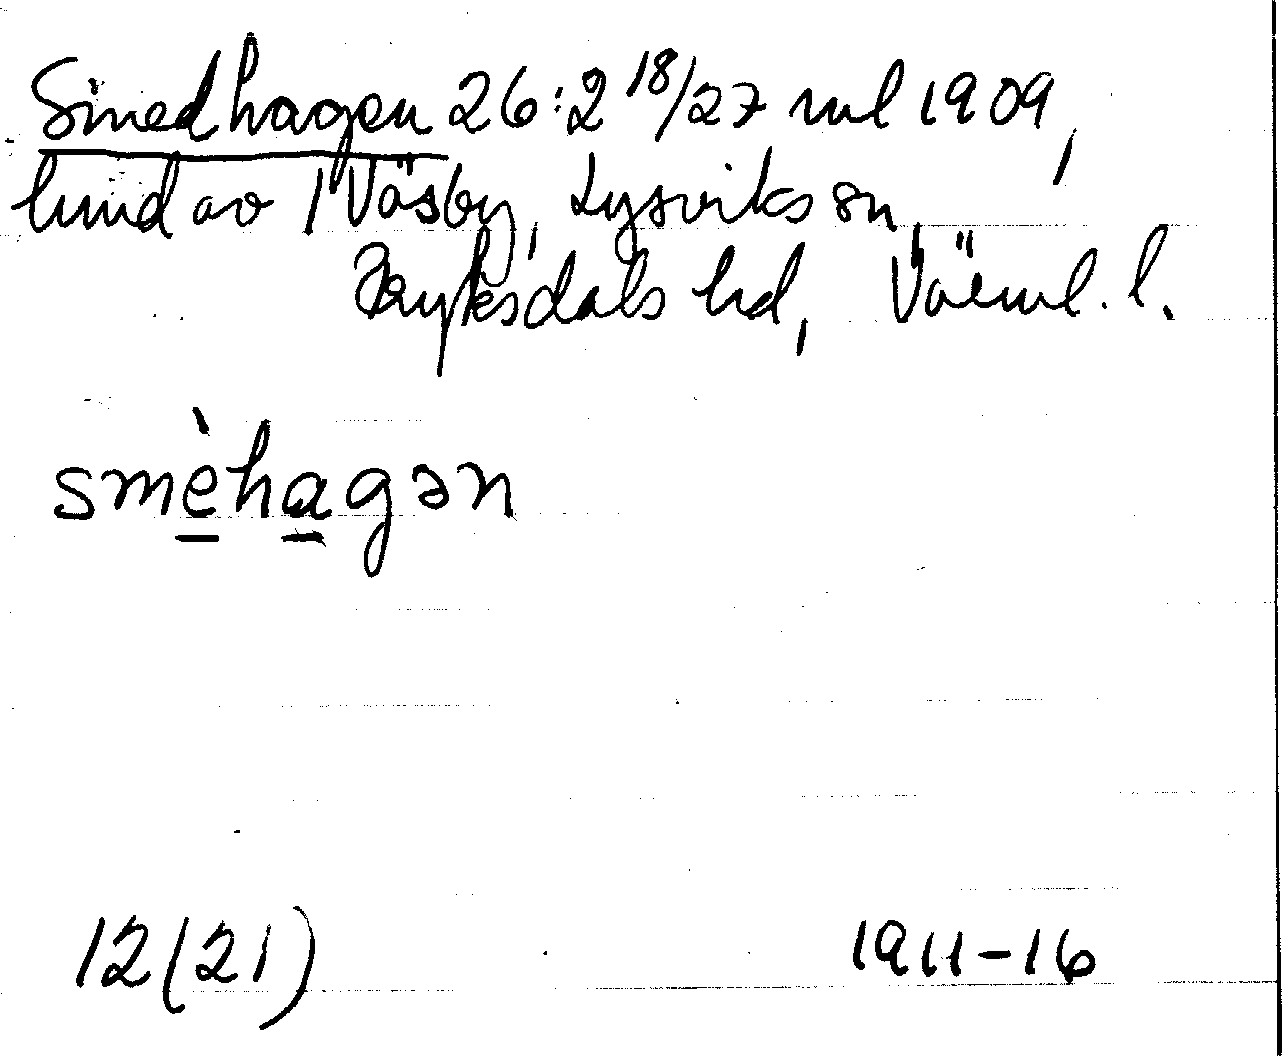 Smedhagen 26:2 18/27 ml 1909,
lund av 1 Väsby, Lysviks sn,
Fryksdals hd, Värml. l.
smèhagən
12(21) 1911-16